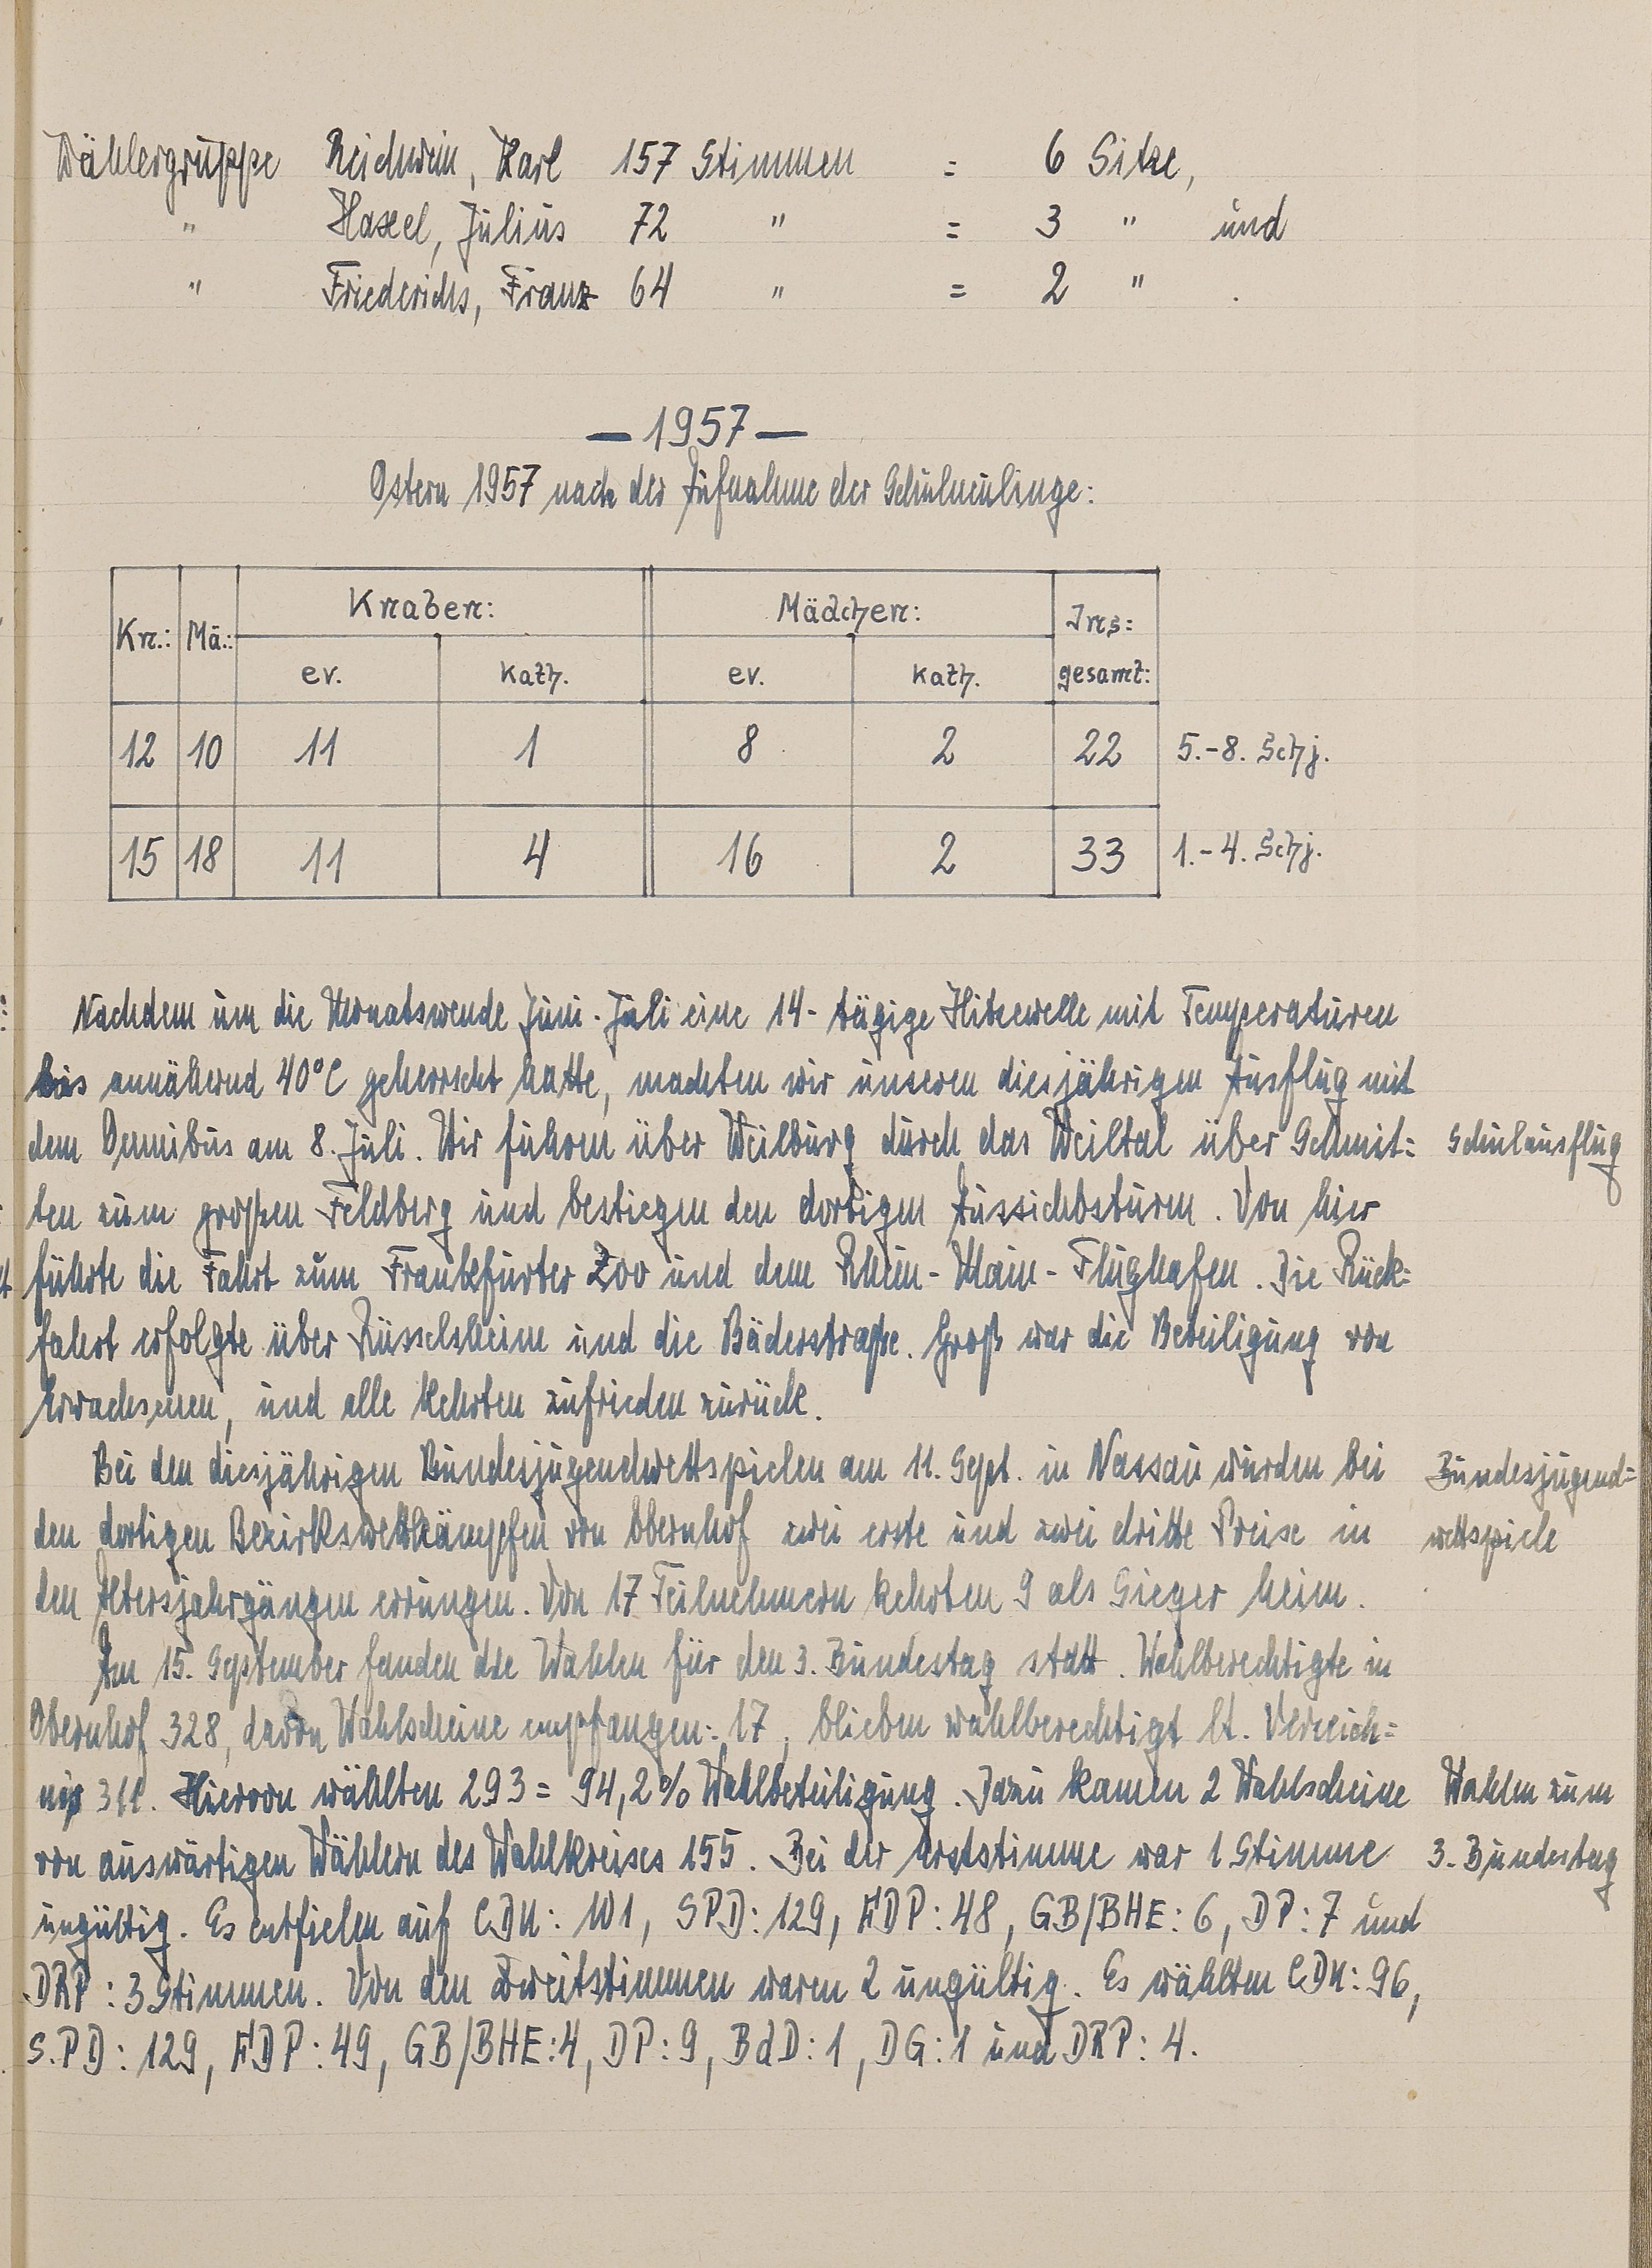 Wählergruppe Reichwein, Karl 157 Stimmen = 6 Sitze,
" Haxel, Julius 72 " = 3 " und
" Friederichs, Franz 64 " = 2 " .
— 1957 —
Ostern 1957 nach der Aufnahme der Schulneulinge:
Kn.: Mä.: Knaben: Mädchen: Ins=
ev. kath. ev. kath. gesamt:
12 10 11 1 8 2 22 5.-8. Schj.
15 18 11 4 16 2 33 1.-4. Schj.
Nachdem um die Monatswende Juni-Juli eine 14-tägige Hitzewelle mit Temperaturen
bis annähernd 40°C geherrscht hatte, machten wir unseren diesjährigen Ausflug mit
dem Omnibus am 8. Juli. Wir fuhren über Weilburg durch das Weiltal über Schmit= Schulausflug
ten zum großen Feldberg und bestiegen den dortigen Aussichtsturm. Von hier
führte die Fahrt zum Frankfurter Zoo und dem Rhein-Main-Flughafen. Die Rück=
fahrt erfolgte über Rüsselsheim und die Bäderstraße. Groß war die Beteiligung von
Erwachsenen, und alle kehrten zufrieden zurück.
Bei den diesjährigen Bundesjugendwettspielen am 11. Sept. in Nassau wurden bei Bundesjugend=
den dortigen Bezirkswettkämpfen von Obernhof zwei erste und zwei dritte Preise in wettspiele
den Altersjahrgängen errungen. Von 17 Teilnehmern kehrten 9 als Sieger heim.
Am 15. September fanden die Wahlen für den 3. Bundestag statt. Wahlberechtigte in
Obernhof 328, davon Wahlscheine empfangen: 17, blieben wahlberechtigt lt. Verzeich=
nis 311. Hiervon wählten 293 = 94,2% Wahlbeteiligung. Dazu kamen 2 Wahlscheine Wahlen zum
von auswärtigen Wählern des Wahlkreises 155. Bei der Erststimme war 1 Stimme 3. Bundestag
ungültig. Es entfielen auf CDU: 101, SPD: 129, FDP: 48, GB/BHE: 6, DP: 7 und
DRP: 3 Stimmen. Von den Zweitstimmen waren 2 ungültig. Es wählten CDU: 96,
S.PD: 129, FDP: 49, GB/BHE: 4, DP: 9, BdD: 1, DG: 1 und DRP: 4.